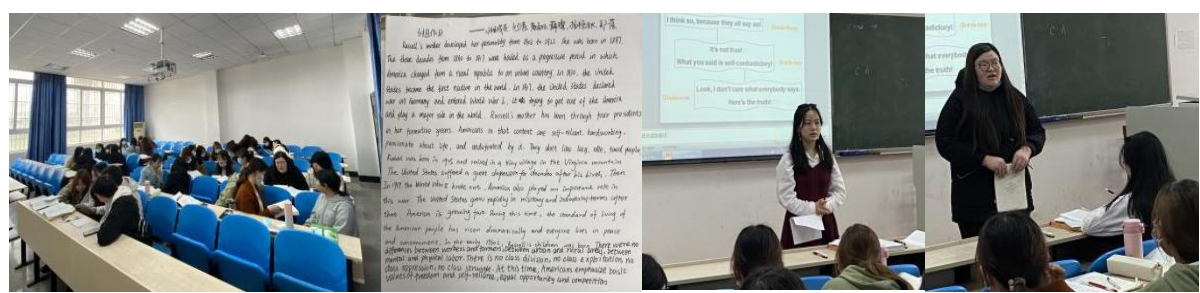 小组作业
Russell's mother developed her personality from 1897 to 1922. She was born in 1897.
The three decades from 1880 to 1917 were hailed as a progressive period in which
America changed from a rural republic to an urban country. In 1894, the United
States became the first native in the world. In 1917, the United States declared
war on Germany and entered World War I, it trying to get out of the America
and play a major role in the world. Russell's mother has been through four presidents
in her formative years. Americans in that context are self-reliant, hardworking,
passionate about life, and undefeated by it. They don't like lazy, idle, timid people
Russell was born in 1925 and raised in a tiny village in the Virginia mountains
The United States suffered a great depression for decades after his birth. Then
In 1939, the World War II broke out. American also played an important role in
this war. The United States grew rapidly in military and industrial terms after
that. American is growing fast. During this time, the standard of living of
the American people has risen dramatically and everyone lives in peace
and contentment. In the early 1960s, Russell's children was born. There were no
differences between workers and farmers, between urban and rural areas, between
mental and physical labor. There is no class division, no class exploitation, no
class oppression, no class struggle. At this time, Americans emphasize basic
values of freedom and self-reliance, equal opportunity and competition
I think so, because they all say so!
It's not true!
What you said is self-contradictory!
Look, I don't care what everybody says.
Here's the truth!
dictory!
hat everybody
the truth!